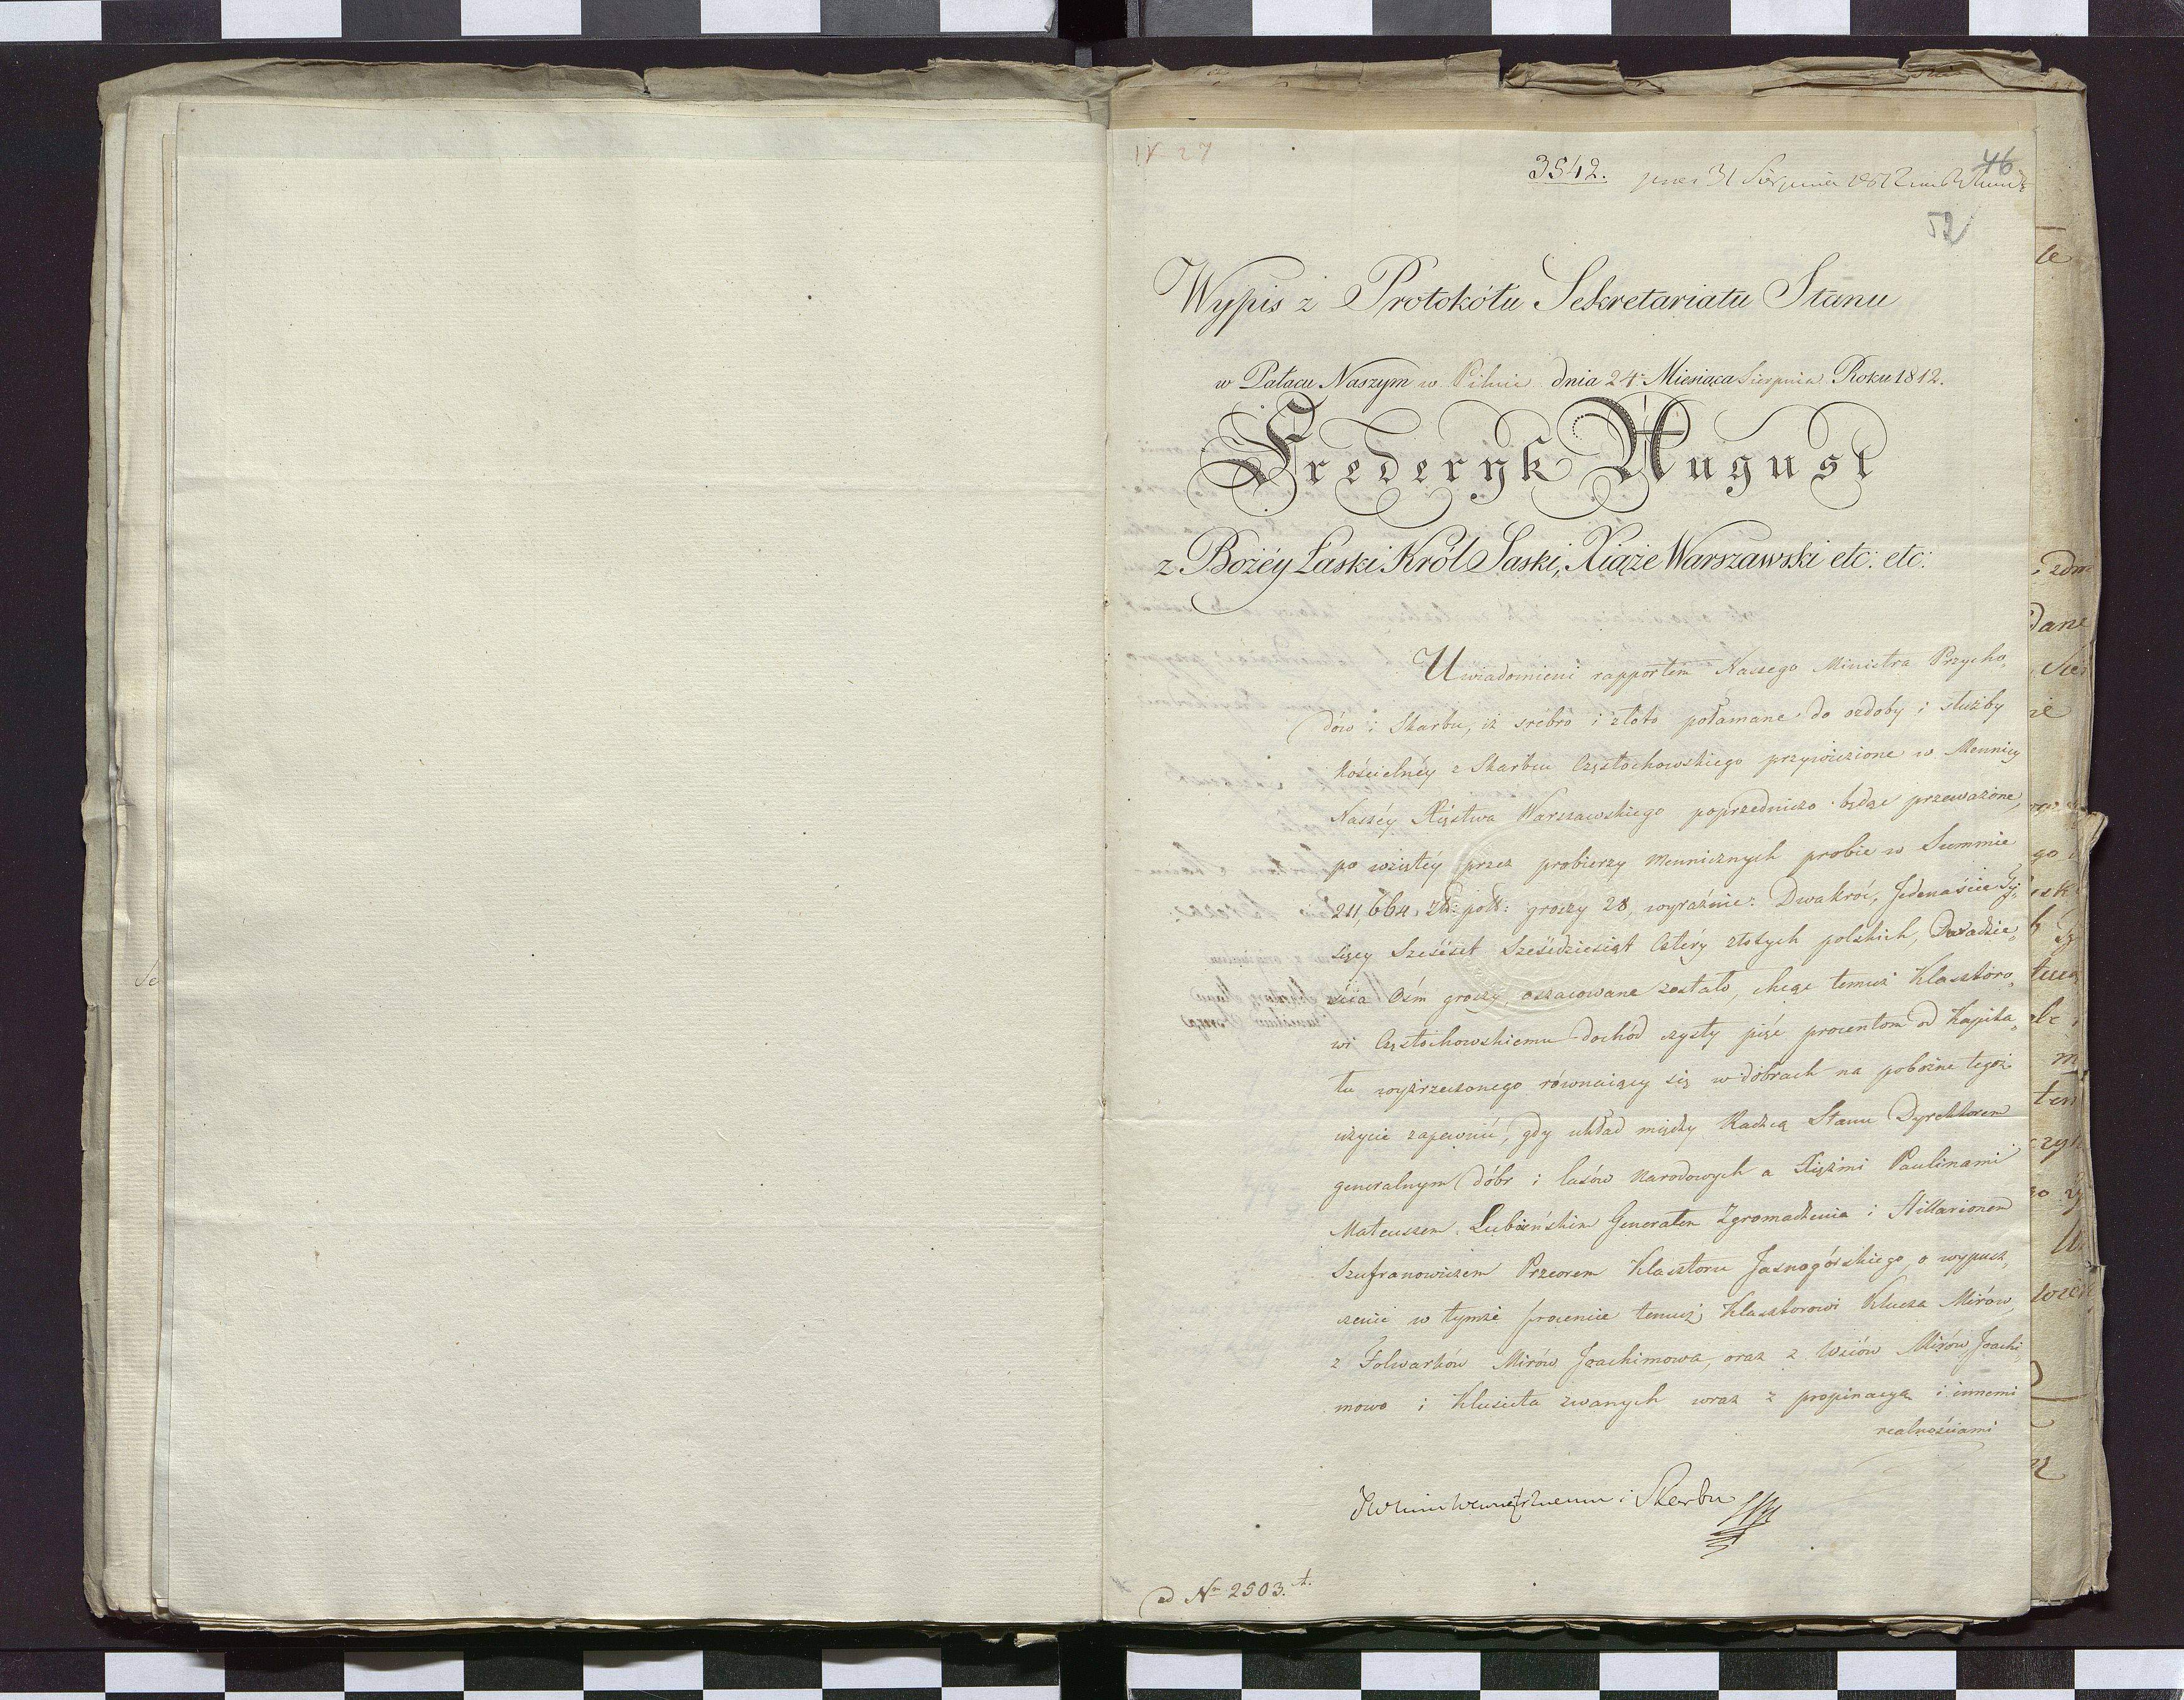 N 27
3542.
46
52
Wypis z Protokółu Sekretariatu Stanu
w Pałacu Naszym w Pilnic dnia 24 Miesiąca Sierpnia Roku 1812.
Frederyk August
z Bożéy Łaski Król Saski, Xiąże Warszawski etc: etc:
Uwiadomieni rapportem Naszego Ministra Przycho„
dów i Skarbu, iż srebro i złoto połamane do ozdoby i służby
Kościelnéy z Skarbcu Częstochowskiego przywiezione w Mennicy
Naszéy Xięstwa Warszawskiego poprzedniczo będąc przeważone,
po wziętéy przez probierzy mennicznych probie w Summie
211,664 Zł: pols: groszy 28, wyraźnie: Dwakroć, Jedenaście Ty„
sięcy Sześćset Sześćdziesiąt Cztéry złotych polskich, Dwadzie„
ścia Ośm groszy oszacowane zostało, chcąc temuż Klasztoro„
wi Częstochowskiemu dochód czysty pięć procentom od Kapita„
łu wyżrzeczonego równaiący się w dobrach na pobożne tegoż
użycie zapewnić, gdy układ między Radzcą Stanu Dyrektorem
generalnym dóbr i lasów Narodowych a Xiężmi Paulinami
Mateuszem Lubieńskim Generałem Zgromadzenia i Hillarionem
Szufranowiczem Przeorem Klasztoru Jasnogórskiego, o wypusz„
czenie w tymże procencie temuż Klasztorowi Klucza Mirów,
z Folwarków Mirów, Joachimowa, oraz z Wsiów Mirów, Joachi„
mowo i Kłusieta zwanych wraz z propinacyą i innemi
realnościami
i Skarbu
ad Nrum 2503.